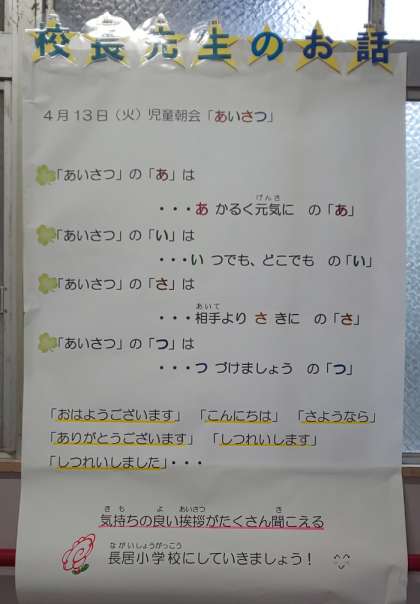 校長先生のお話
4月13日（火）児童朝会「あいさつ」
「あいさつ」の「あ」は
げんき
・・・あ かるく元気に の「あ」
「あいさつ」の「い」は
・・・い つでも、どこでも の「い」
「あいさつ」の「さ」は
あいて
・・・相手より さ きに の「さ」
「あいさつ」の「つ」は
・・・つ づけましょう の「つ」
「おはようございます」 「こんにちは」 「さようなら」
「ありがとうございます」 「しつれいします」
「しつれいしました」・・・
きも よ あいさつ き
気持ちの良い挨拶がたくさん聞こえる
ながいしょうがっこう
長居小学校にしていきましょう！